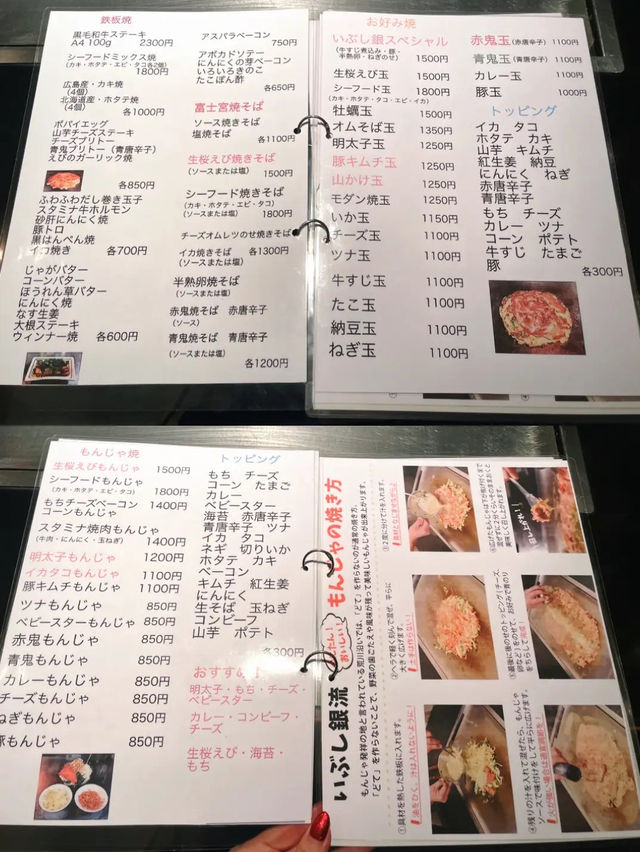 鉄板焼
黒毛和牛ステーキ
A4 100g 2300円
シーフードミックス焼
(カキ・ホタテ・エビ・タコ各2個)
1800円
広島産・カキ焼
(4個)
北海道産・ホタテ焼
(4個)
各1000円
ポパイエッグ
山芋チーズステーキ
チーズブリトー
青鬼ブリトー (青唐辛子)
えびのガーリック焼
各850円
ふわふわだし巻き玉子
スタミナ牛ホルモン
砂肝にんにく焼
豚トロ
黒はんぺん焼
イカ焼き 各700円
じゃがバター
コーンバター
ほうれん草バター
にんにく焼
なす生姜
大根ステーキ
ウィンナー焼 各600円
アスパラベーコン
750円
アボカドソテー
にんにくの芽ベーコン
いろいろきのこ
たこぽん酢
各650円
富士宮焼そば
ソース焼きそば
塩焼そば
各1100円
生桜えび焼きそば
(ソースまたは塩)
1500円
シーフード焼きそば
(カキ・ホタテ・エビ・タコ)
(ソースまたは塩) 1800円
チーズオムレツのせ焼きそば
イカ焼きそば 各1300円
(ソースまたは塩)
半熟卵焼そば
(ソースまたは塩)
赤鬼焼そば 赤唐辛子
(ソース)
青鬼焼そば 青唐辛子
(ソースまたは塩)
各1200円
お好み焼
いぶし銀スペシャル
(牛すじ煮込み・豚・
半熟卵・ねぎのせ) 1500円
生桜えび玉 1500円
シーフード玉 1800円
(カキ・ホタテ・タコ・エビ・イカ)
牡蠣玉 1500円
オムそば玉 1350円
明太子玉 1250円
豚キムチ玉 1250円
山かけ玉 1250円
モダン焼玉 1250円
いか玉 1150円
チーズ玉 1100円
ツナ玉 1100円
牛すじ玉 1100円
たこ玉 1100円
納豆玉 1100円
ねぎ玉 1100円
赤鬼玉(赤唐辛子) 1100円
青鬼玉(青唐辛子) 1100円
カレー玉 1100円
豚玉 1000円
トッピング
イカ タコ
ホタテ カキ
山芋 キムチ
紅生姜 納豆
にんにく ねぎ
赤唐辛子
青唐辛子
もち チーズ
カレー ツナ
コーン ポテト
牛すじ たまご
豚
各300円
もんじゃ焼
生桜えびもんじゃ
1500円
シーフードもんじゃ
(カキ・ホタテ・エビ・タコ) 1800円
もちチーズベーコン 1400円
コーンもんじゃ
スタミナ焼肉もんじゃ
(牛肉・にんにく・玉ねぎ) 1400円
明太子もんじゃ 1200円
イカタコもんじゃ 1100円
豚キムチもんじゃ 1100円
ツナもんじゃ 850円
ベビースターもんじゃ 850円
赤鬼もんじゃ 850円
青鬼もんじゃ 850円
カレーもんじゃ 850円
チーズもんじゃ 850円
ねぎもんじゃ 850円
豚もんじゃ 850円
トッピング
もち チーズ
コーン たまご
カレー
ベビースター
海苔 赤唐辛子
青唐辛子 ツナ
イカ タコ
ネギ 切りいか
ホタテ カキ
ベーコン
キムチ 紅生姜
にんにく
生そば 玉ねぎ
コンビーフ
山芋 ポテト
各300円
おすすめ
明太子・もち・チーズ・
ベビースター
カレー・コンビーフ・
チーズ
生桜えび・海苔・
もち
いぶし銀流
おいしい
もんじゃの焼き方
もんじゃ発祥の地と言われている荒川沿いでは、「どて」を作らないのが通常の焼き方。
「どて」を作らないことで、野菜の歯ごたえや風味が残って美味しいもんじゃが出来上がります。
①具材を熱した鉄板に入れます。
油をひく。汁は入れないように
②ヘラで軽く刻んで混ぜ、平らに
大きく広げます。
土手は作らない!
③2度に分けて汁を入れます。
④残りの汁を入れて混ぜたら、もんじゃ
ソースで味付けをし、平らに広げます。
⑤最後に後のせのトッピング(チーズ、
卵など)をのせて、お好みで青のり
をちらして完成!
召し上がれ!